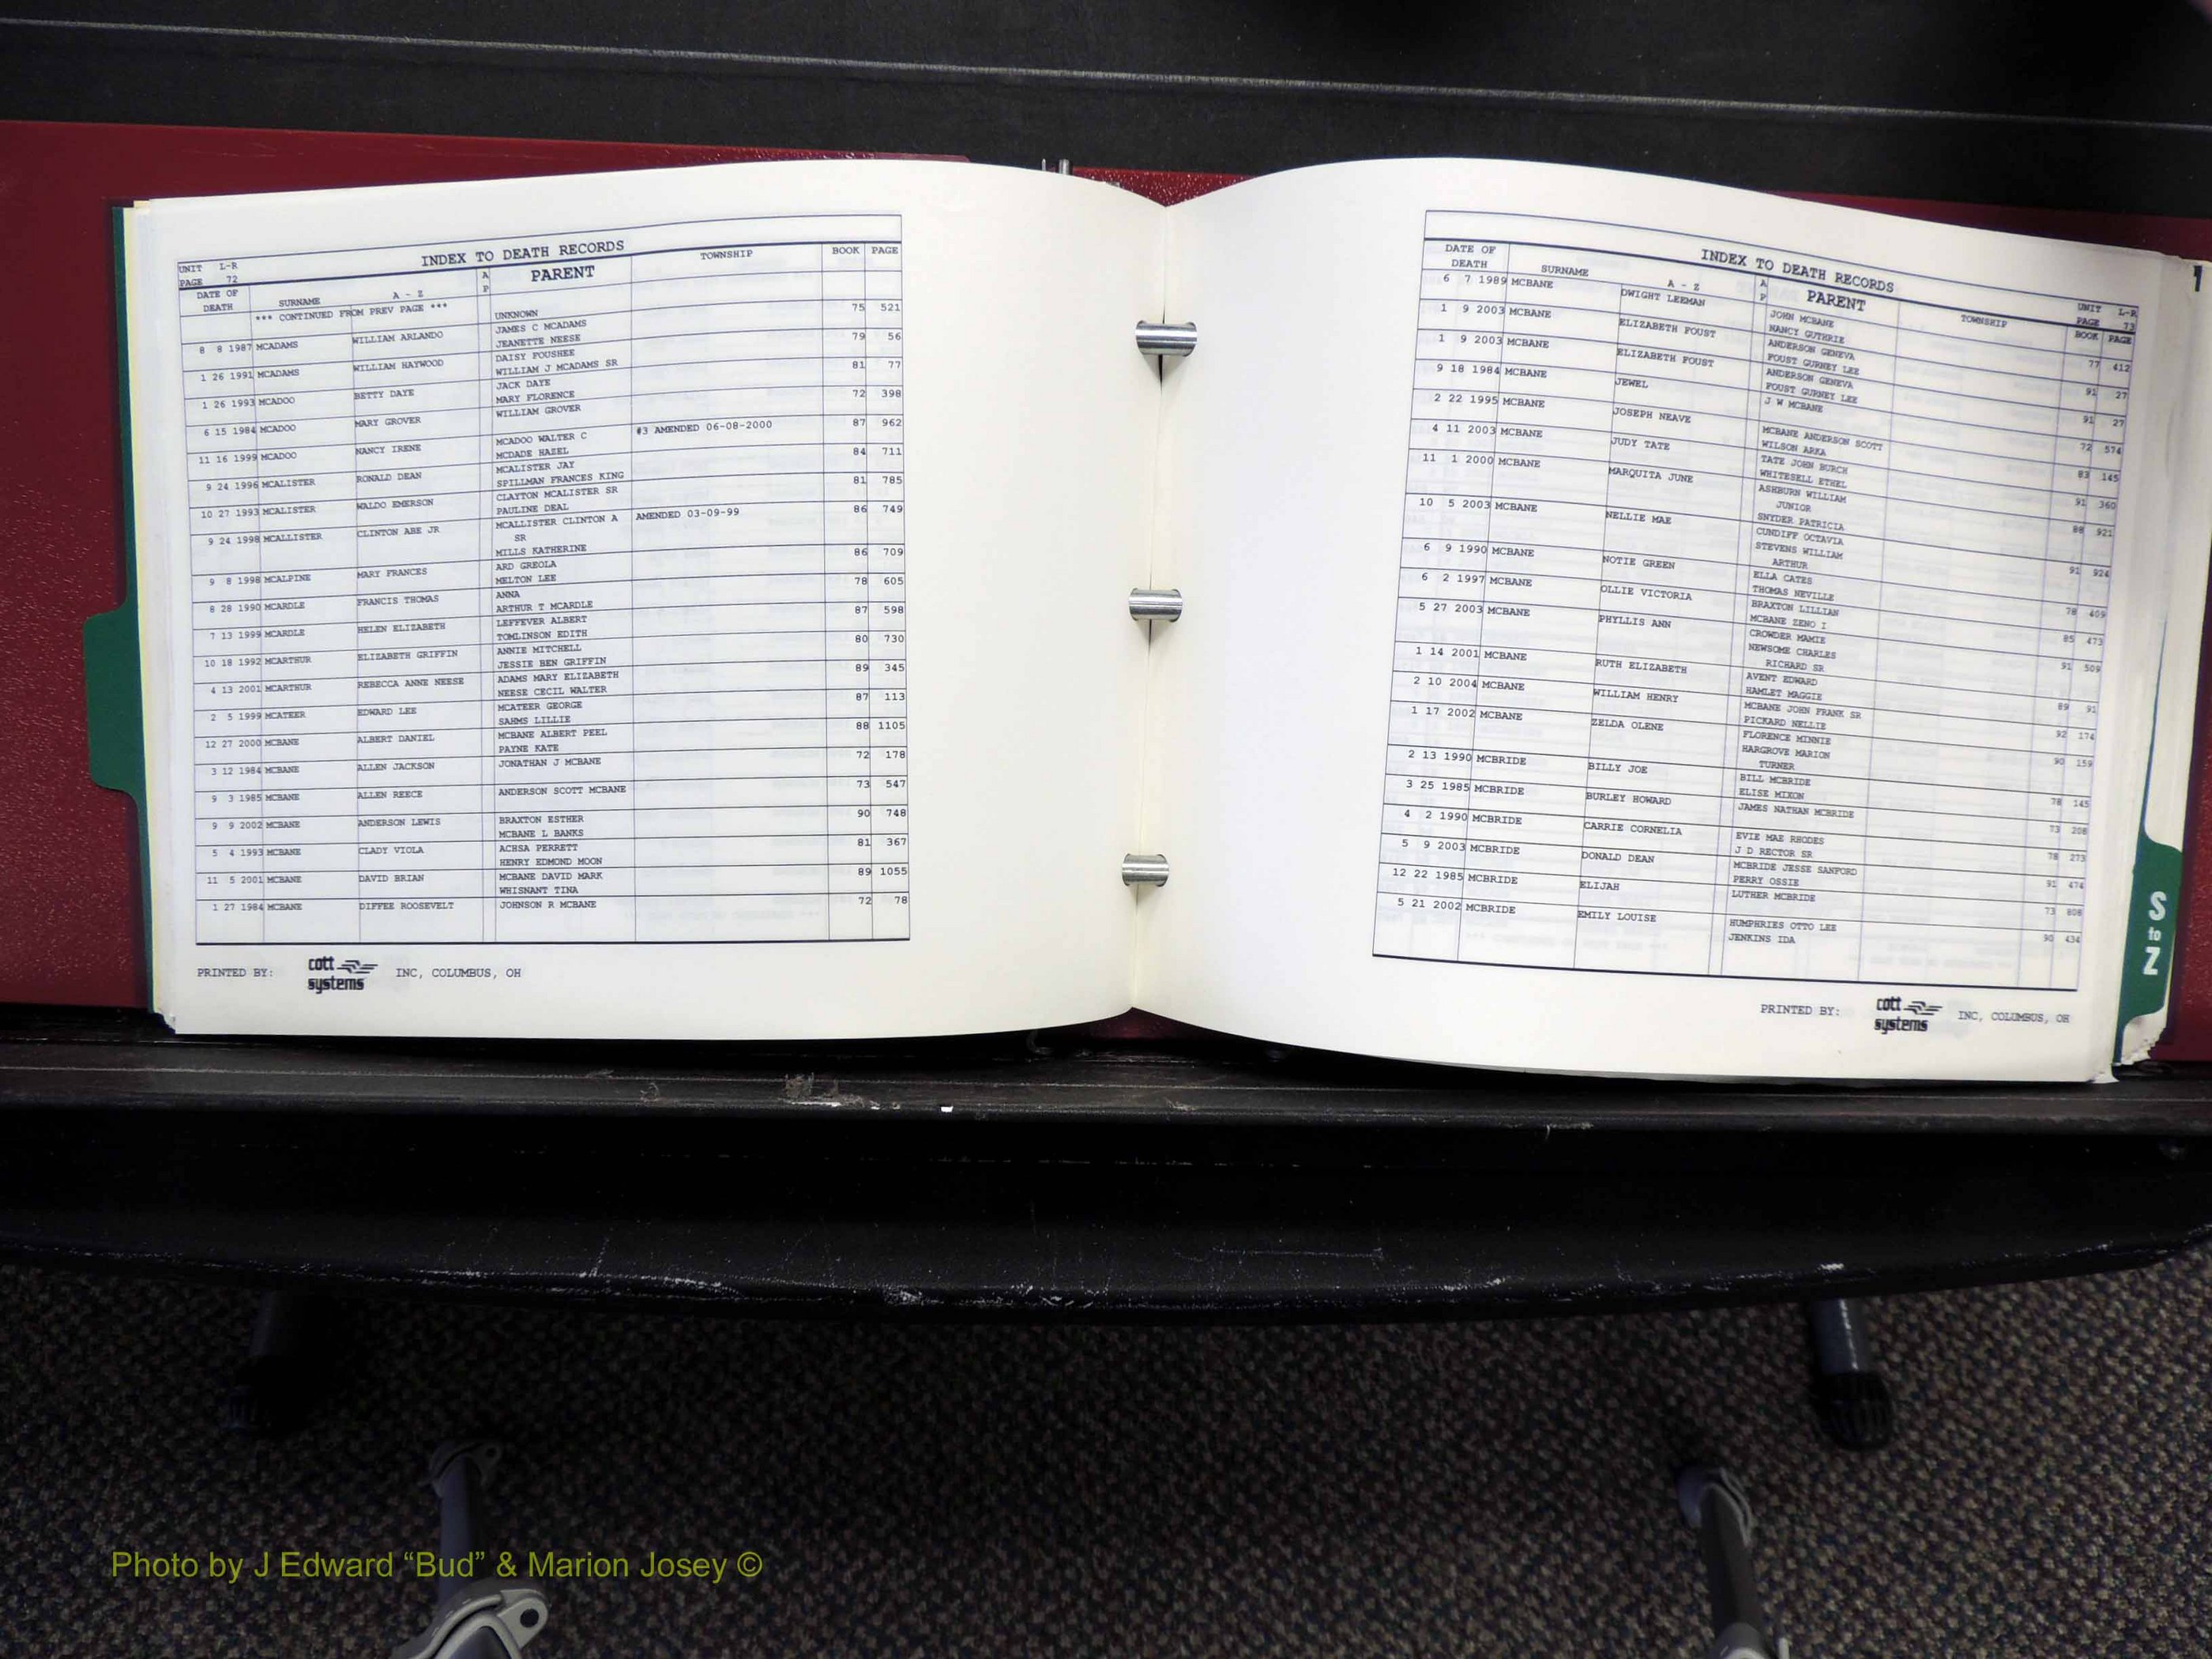 INDEX TO DEATH RECORDS
UNIT L-R
PAGE 72
DATE OF DEATH SURNAME A - Z A P PARENT TOWNSHIP BOOK PAGE
*** CONTINUED FROM PREV PAGE ***
UNKNOWN 75 521
8 8 1987 MCADAMS WILLIAM ARLANDO JAMES C MCADAMS 79 56
JEANETTE NEESE
1 26 1991 MCADAMS WILLIAM HAYWOOD DAISY FOUSHEE 81 77
WILLIAM J MCADAMS SR
1 26 1993 MCADOO BETTY DAYE JACK DAYE 72 398
MARY FLORENCE
6 15 1984 MCADOO MARY GROVER WILLIAM GROVER 87 962
11 16 1999 MCADOO NANCY IRENE MCADOO WALTER C #3 AMENDED 06-08-2000 84 711
MCDADE HAZEL
9 24 1996 MCALISTER RONALD DEAN MCALISTER JAY 81 785
SPILLMAN FRANCES KING
10 27 1993 MCALISTER WALDO EMERSON CLAYTON MCALISTER SR 86 749
PAULINE DEAL
9 24 1998 MCALLISTER CLINTON ABE JR MCALLISTER CLINTON A AMENDED 03-09-99
SR
MILLS KATHERINE 86 709
9 8 1998 MCALPINE MARY FRANCES ARD GREOLA
MELTON LEE 78 605
8 28 1990 MCARDLE FRANCIS THOMAS ANNA
ARTHUR T MCARDLE 87 598
7 13 1999 MCARDLE HELEN ELIZABETH LEFFEVER ALBERT
TOMLINSON EDITH 80 730
10 18 1992 MCARTHUR ELIZABETH GRIFFIN ANNIE MITCHELL
JESSIE BEN GRIFFIN 89 345
4 13 2001 MCARTHUR REBECCA ANNE NEESE ADAMS MARY ELIZABETH
NEESE CECIL WALTER 87 113
2 5 1999 MCATEER EDWARD LEE MCATEER GEORGE
SAHMS LILLIE 88 1105
12 27 2000 MCBANE ALBERT DANIEL MCBANE ALBERT PEEL
PAYNE KATE 72 178
3 12 1984 MCBANE ALLEN JACKSON JONATHAN J MCBANE
73 547
9 3 1985 MCBANE ALLEN REECE ANDERSON SCOTT MCBANE
90 748
9 9 2002 MCBANE ANDERSON LEWIS BRAXTON ESTHER
MCBANE L BANKS 81 367
5 4 1993 MCBANE CLADY VIOLA ACHSA PERRETT
HENRY EDMOND MOON 89 1055
11 5 2001 MCBANE DAVID BRIAN MCBANE DAVID MARK
WHISNANT TINA 72 78
1 27 1984 MCBANE DIFFEE ROOSEVELT JOHNSON R MCBANE
PRINTED BY: cott systems INC, COLUMBUS, OH
INDEX TO DEATH RECORDS
UNIT L-R
PAGE 73
DATE OF DEATH SURNAME A - Z A P PARENT TOWNSHIP BOOK PAGE
6 7 1989 MCBANE DWIGHT LEEMAN JOHN MCBANE 77 412
NANCY GUTHRIE
1 9 2003 MCBANE ELIZABETH FOUST ANDERSON GENEVA 91 27
FOUST GURNEY LEE
1 9 2003 MCBANE ELIZABETH FOUST ANDERSON GENEVA 91 27
FOUST GURNEY LEE
9 18 1984 MCBANE JEWEL J W MCBANE 72 574
2 22 1995 MCBANE JOSEPH NEAVE MCBANE ANDERSON SCOTT 83 145
WILSON ARKA
4 11 2003 MCBANE JUDY TATE TATE JOHN BURCH 91 360
WHITESELL ETHEL
11 1 2000 MCBANE MARQUITA JUNE ASHBURN WILLIAM 88 921
JUNIOR
SNYDER PATRICIA
10 5 2003 MCBANE NELLIE MAE CUNDIFF OCTAVIA 91 924
STEVENS WILLIAM
ARTHUR
6 9 1990 MCBANE NOTIE GREEN ELLA CATES 78 409
THOMAS NEVILLE
6 2 1997 MCBANE OLLIE VICTORIA BRAXTON LILLIAN 85 473
MCBANE ZENO I
5 27 2003 MCBANE PHYLLIS ANN CROWDER MAMIE 91 509
NEWSOME CHARLES
RICHARD SR
1 14 2001 MCBANE RUTH ELIZABETH AVENT EDWARD 89 91
HAMLET MAGGIE
2 10 2004 MCBANE WILLIAM HENRY MCBANE JOHN FRANK SR 92 174
PICKARD NELLIE
1 17 2002 MCBANE ZELDA OLENE FLORENCE MINNIE 90 159
HARGROVE MARION
TURNER
2 13 1990 MCBRIDE BILLY JOE BILL MCBRIDE 78 145
ELISE MIXON
3 25 1985 MCBRIDE BURLEY HOWARD JAMES NATHAN MCBRIDE 73 208
4 2 1990 MCBRIDE CARRIE CORNELIA EVIE MAE RHODES 78 273
J D RECTOR SR
5 9 2003 MCBRIDE DONALD DEAN MCBRIDE JESSE SANFORD 91 474
PERRY OSSIE
12 22 1985 MCBRIDE ELIJAH LUTHER MCBRIDE 73 808
5 21 2002 MCBRIDE EMILY LOUISE HUMPHRIES OTTO LEE 90 434
JENKINS IDA
PRINTED BY: cott systems INC, COLUMBUS, OH
1
S
to
Z
Photo by J Edward “Bud” & Marion Josey ©